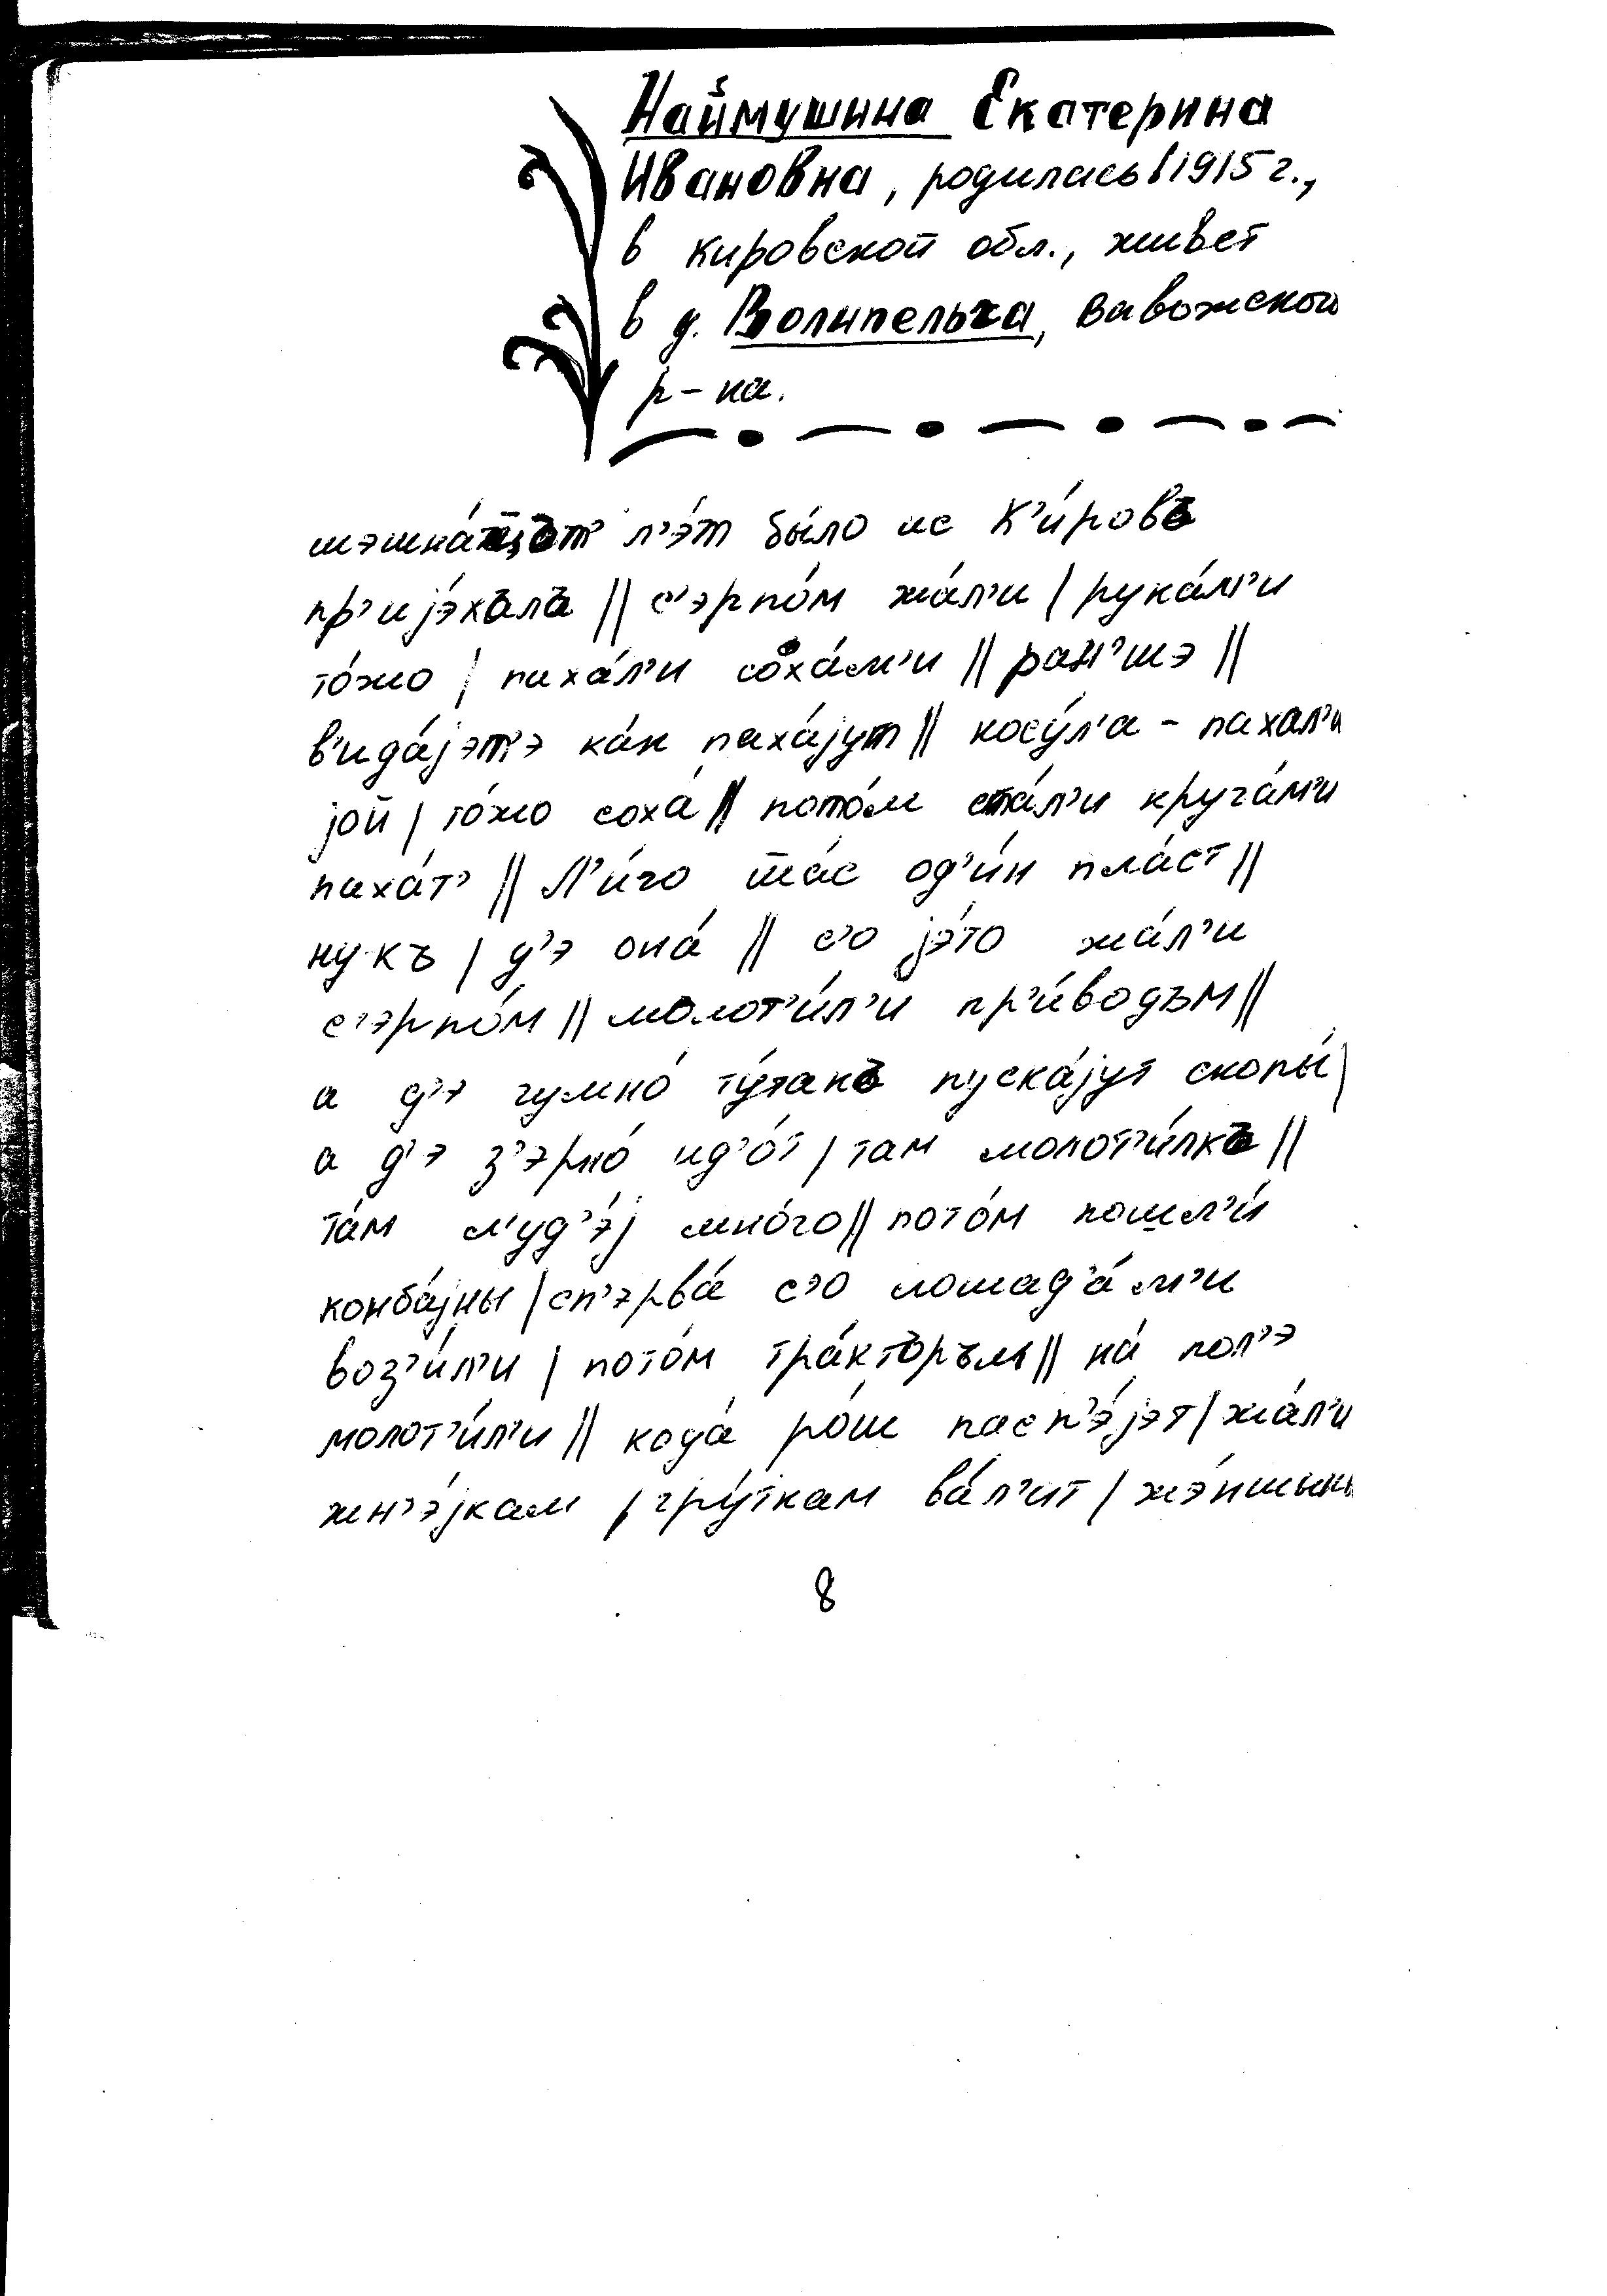 Наймушина Екатерина
Ивановна, родилась в 1915 г.,
в Кировской обл., живет
в д. Волипельга, Вавожского
р-на.
шэшна́ц:ът' л'э́т бы́ло ис К'и́ровъ
пр'иjэ́хълъ || с'эрпо́м жа́л'и | рука́м'и
то́жо | паха́л'и соха́м'и || ран'шэ ||
в'ида́jэт'э ка́к паха́jут || косу́л'а - пахал'и
jой | то́жо соха́ || пото́м ста́л'и круга́м'и
паха́т' || Л'и́го ша́с од'и́н пла́ст ||
ну-къ | д'э она́ || с'о jэ́то жа́л'и
с'эрпо́м || молот'и́л'и пр'и́водъм ||
а д'э гумно́ ту́такъ пуска́jут снопы́ |
а д'э з'эрно́ ид'о́т | там молот'и́лкъ ||
та́м л'уд'э́j мно́го || пото́м пошл'и́
комба́jны | сп'эрва́ с'о лошад'а́м'и
воз'и́л'и | пото́м тра́кторъм || на́ пол'э
молот'и́л'и || кода́ ро́ш посп'э́jэт | жа́л'и
жн'э́jкам | гру́ткам ва́л'ит | жэ́ншыны
8